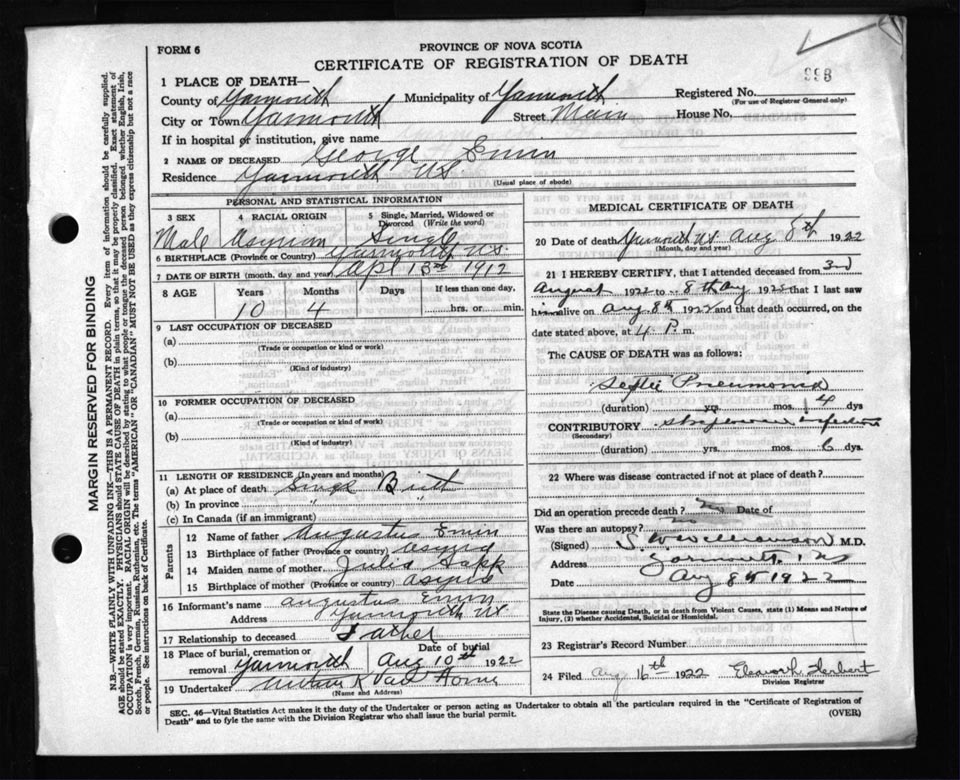 FORM 6
PROVINCE OF NOVA SCOTIA
CERTIFICATE OF REGISTRATION OF DEATH
998
1 PLACE OF DEATH—
County of Yarmouth Municipality of Yarmouth Registered No.
(For use of Registrar General only)
City or Town Yarmouth Street Main House No.
If in hospital or institution, give name
2 NAME OF DECEASED George Emin
Residence Yarmouth NS
(Usual place of abode)
PERSONAL AND STATISTICAL INFORMATION
3 SEX 4 RACIAL ORIGIN 5 Single, Married, Widowed or Divorced (Write the word)
Male Asyrian Single
6 BIRTHPLACE (Province or Country) Yarmouth NS.
7 DATE OF BIRTH (month, day and year) Apl 13th 1912
8 AGE Years Months Days If less than one day,
10 4 hrs. or min.
9 LAST OCCUPATION OF DECEASED
(a)
(Trade or occupation or kind or work)
(b)
(Kind of industry)
10 FORMER OCCUPATION OF DECEASED
(a)
(Trade or occupation or kind of work)
(b)
(Kind of industry)
11 LENGTH OF RESIDENCE (In years and months)
(a) At place of death Since Birth
(b) In province " "
(c) In Canada (if an immigrant)
Parents
12 Name of father Augustus Emin
13 Birthplace of father (Province or Country) Asyria
14 Maiden name of mother Julia
15 Birthplace of mother (Province or Country) Asyria
16 Informant's name Augustus Emin
Address Yarmouth NS
17 Relationship to deceased Father
18 Place of burial, cremation or removal Yarmouth Date of burial Aug 10th 1922
19 Undertaker Van Horne
(Name and Address)
MEDICAL CERTIFICATE OF DEATH
20 Date of death Yarmouth NS Aug 8th 1922
(Month, day and year)
21 I HEREBY CERTIFY, that I attended deceased from 3rd
August 1922 to 8th Aug 1922 that I last saw
him alive on Aug 8th 1922 and that death occurred, on the
date stated above, at 4 P. m.
The CAUSE OF DEATH was as follows:
Septic Pneumonia
(duration) yrs. mos. 4 dys
CONTRIBUTORY infection
(Secondary)
(duration) yrs. mos. 6 dys
22 Where was disease contracted if not at place of death?
Did an operation precede death? No Date of
Was there an autopsy? no
(Signed) S W Williamson M.D.
Address Yarmouth, NS
Date Aug 8th 1922
State the Disease causing Death, or in death from Violent Causes, state (1) Means and Nature of
Injury, (2) whether Accidental, Suicidal or Homicidal.
23 Registrar's Record Number
24 Filed Aug 16th 1922 Herbert
Division Registrar
SEC. 46—Vital Statistics Act makes it the duty of the Undertaker or person acting as Undertaker to obtain all the particulars required in the "Certificate of Registration of
Death" and to fyle the same with the Division Registrar who shall issue the burial permit. (OVER)
MARGIN RESERVED FOR BINDING
N.B.—WRITE PLAINLY WITH UNFADING INK—THIS IS A PERMANENT RECORD. Every item of information should be carefully supplied.
AGE should be stated EXACTLY. PHYSICIANS should STATE CAUSE OF DEATH in plain terms, so that it may be properly classified. Exact statement of
OCCUPATION is very important. RACIAL ORIGIN will be described by stating to what people or tongue the deceased person belonged whether English, Irish,
Scotch, French, German, Russian, Ruthenian, etc. The terms "AMERICAN" OR "CANADIAN" MUST NOT BE USED as they express citizenship but not a race
or people. See instructions on back of Certificate.